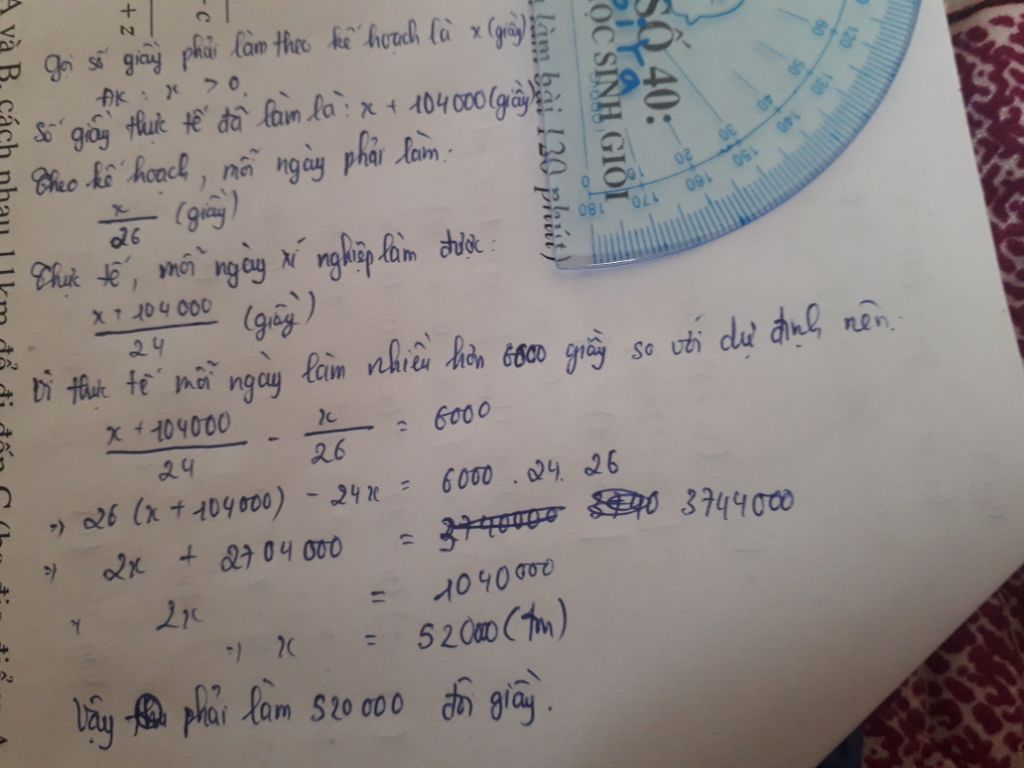 Gọi số giầy phải làm theo kế hoạch là x (giầy)
ĐK : x > 0.
Số giầy thực tế đã làm là: x + 104000 (giầy)
Theo kế hoạch, mỗi ngày phải làm:
x/26 (giầy)
Thực tế, mỗi ngày xí nghiệp làm được:
x + 104000/24 (giầy)
Vì thực tế mỗi ngày làm nhiều hơn 6000 giầy so với dự định nên:
x + 104000/24 - x/26 = 6000
=> 26 (x + 104000) - 24x = 6000 . 24. 26
=> 2x + 2704000 = 3744000
2x = 1040000
=> x = 520000 (tm)
Vậy phải làm 520000 đôi giầy.
SỐ 40:
HỌC SINH GIỎI
làm bài 120 phút)
0 10 20 30
180 170 160 150 140 130 120
50 60
A và B, cách nhau 11km để đi đến C
+ z
- c